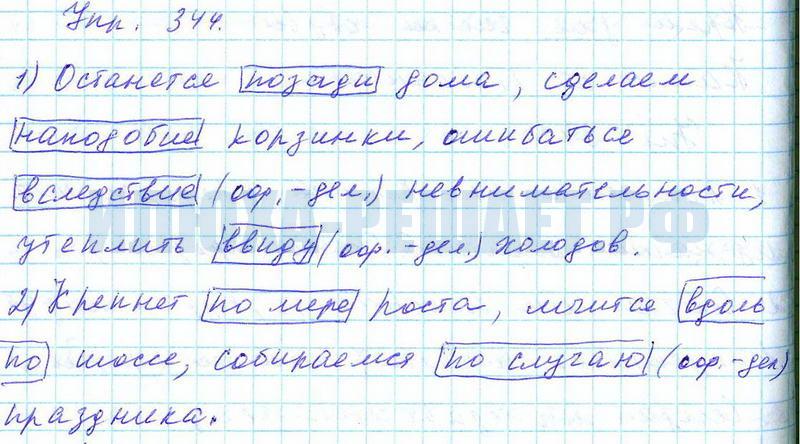 Упр. 344.
1) Останется позади дома, сделаем
наподобие корзинки, ошибаться
вследствие (оф.-дел.) невнимательности,
утеплить ввиду (оф.-дел.) холодов.
2) Крепнет по мере роста, мчится вдоль
по шоссе, собираемся по случаю (оф.-дел)
праздника.